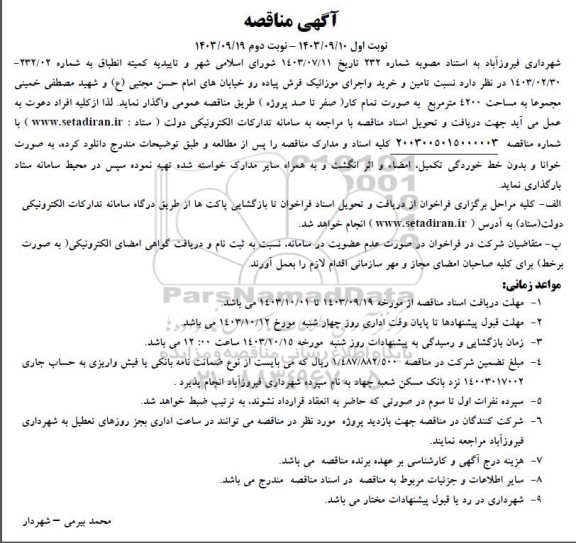 آگهی مناقصه
نوبت اول ۱۴۰۳/۰۹/۱۰ – نوبت دوم ۱۴۰۳/۰۹/۱۹
شهرداری فیروزآباد به استناد مصوبه شماره ۲۳۲ تاریخ ۱۴۰۳/۰۷/۱۱ شورای اسلامی شهر و تاییدیه کمیته انطباق به شماره ۲۳۲/۰۲-
۱۴۰۳/۰۲/۳۰ در نظر دارد نسبت تامین و خرید واجرای موزائیک فرش پیاده رو خیابان های امام حسن مجتبی (ع) و شهید مصطفی خمینی
مجموعا به مساحت ۴۲۰۰ مترمربع به صورت تمام کار( صفر تا صد پروژه ) طریق مناقصه عمومی واگذار نماید. لذا ازکلیه افراد دعوت به
عمل می آید جهت دریافت و تحویل اسناد مناقصه با مراجعه به سامانه تدارکات الکترونیکی دولت ( ستاد : www.setadiran.ir ) با
شماره مناقصه ۲۰۰۳۰۰۵۰۱۵۰۰۰۰۰۳ کلیه اسناد و مدارک مناقصه را پس از مطالعه و طبق توضیحات مندرج دانلود کرده، به صورت
خوانا و بدون خط خوردگی تکمیل، امضاء و اثر انگشت و به همراه سایر مدارک خواسته شده تهیه نموده سپس در محیط سامانه ستاد
بارگذاری نماید.
الف- کلیه مراحل برگزاری فراخوان از دریافت و تحویل اسناد فراخوان تا بازگشایی پاکت ها از طریق درگاه سامانه تدارکات الکترونیکی
دولت(ستاد) به آدرس ( www.setadiran.ir ) انجام خواهد شد.
ب- متقاضیان شرکت در فراخوان در صورت عدم عضویت در سامانه، نسبت به ثبت نام و دریافت گواهی امضای الکترونیکی( به صورت
برخط) برای کلیه صاحبان امضای مجاز و مهر سازمانی اقدام لازم را بعمل آورند.
مواعد زمانی:
۱- مهلت دریافت اسناد مناقصه از مورخه ۱۴۰۳/۰۹/۱۹ تا ۱۴۰۳/۱۰/۰۱ می باشد.
۲- مهلت قبول پیشنهادها تا پایان وقت اداری روز چهار شنبه مورخ ۱۴۰۳/۱۰/۱۲ می باشد.
۳- زمان بازگشایی و رسیدگی به پیشنهادات روز شنبه مورخه ۱۴۰۳/۱۰/۱۵ ساعت ۰۰: ۱۲ می باشد.
۴- مبلغ تضمین شرکت در مناقصه ۱/۴۸۷/۸۸۲/۵۰۰ ریال که می بایست از نوع ضمانت نامه بانکی یا فیش واریزی به حساب جاری
۱۴۰۰۳۰۱۷۰۰۲ نزد بانک مسکن شعبه جهاد به نام سپرده شهرداری فیروزآباد انجام پذیرد .
۵- سپرده نفرات اول تا سوم در صورتی که حاضر به انعقاد قرارداد نشوند، به ترتیب ضبط خواهد شد.
۶- شرکت کنندگان در مناقصه جهت بازدید پروژه مورد نظر در مناقصه می توانند در ساعت اداری بجز روزهای تعطیل به شهرداری
فیروزآباد مراجعه نمایند.
۷- هزینه درج آگهی و کارشناسی بر عهده برنده مناقصه می باشد.
۸- سایر اطلاعات و جزئیات مربوط به مناقصه در اسناد مناقصه مندرج می باشد.
۹- شهرداری در رد یا قبول پیشنهادات مختار می باشد.
محمد بیرمی – شهردار
ParsNamadData